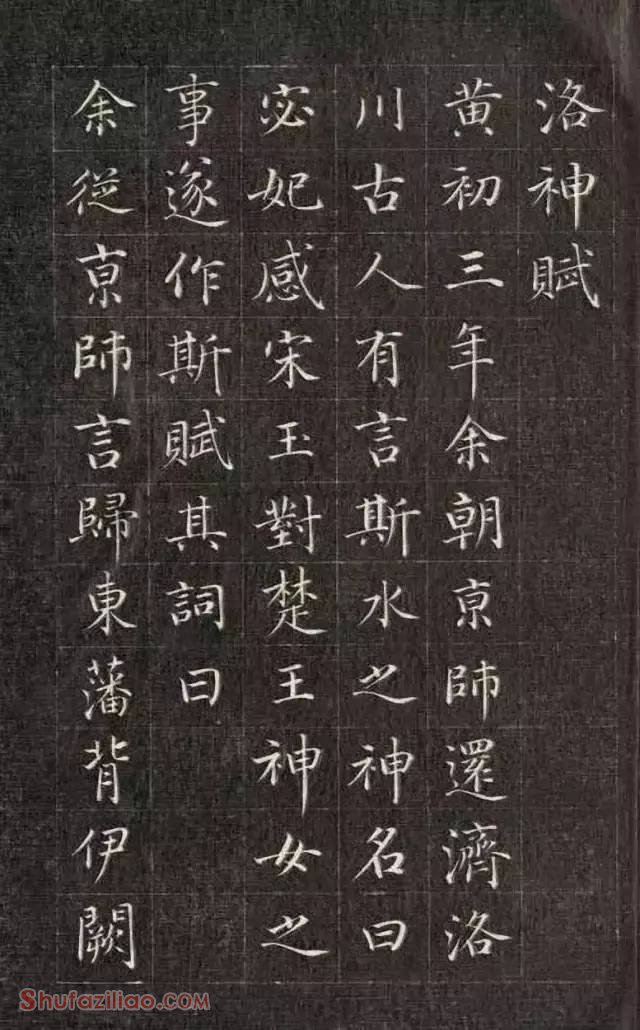 洛神賦
黄初三年余朝京師還濟洛
川古人有言斯水之神名曰
宓妃感宋玉對楚王神女之
事遂作斯賦其詞曰
余從京師言歸東藩背伊闕
Shufaziliao.com